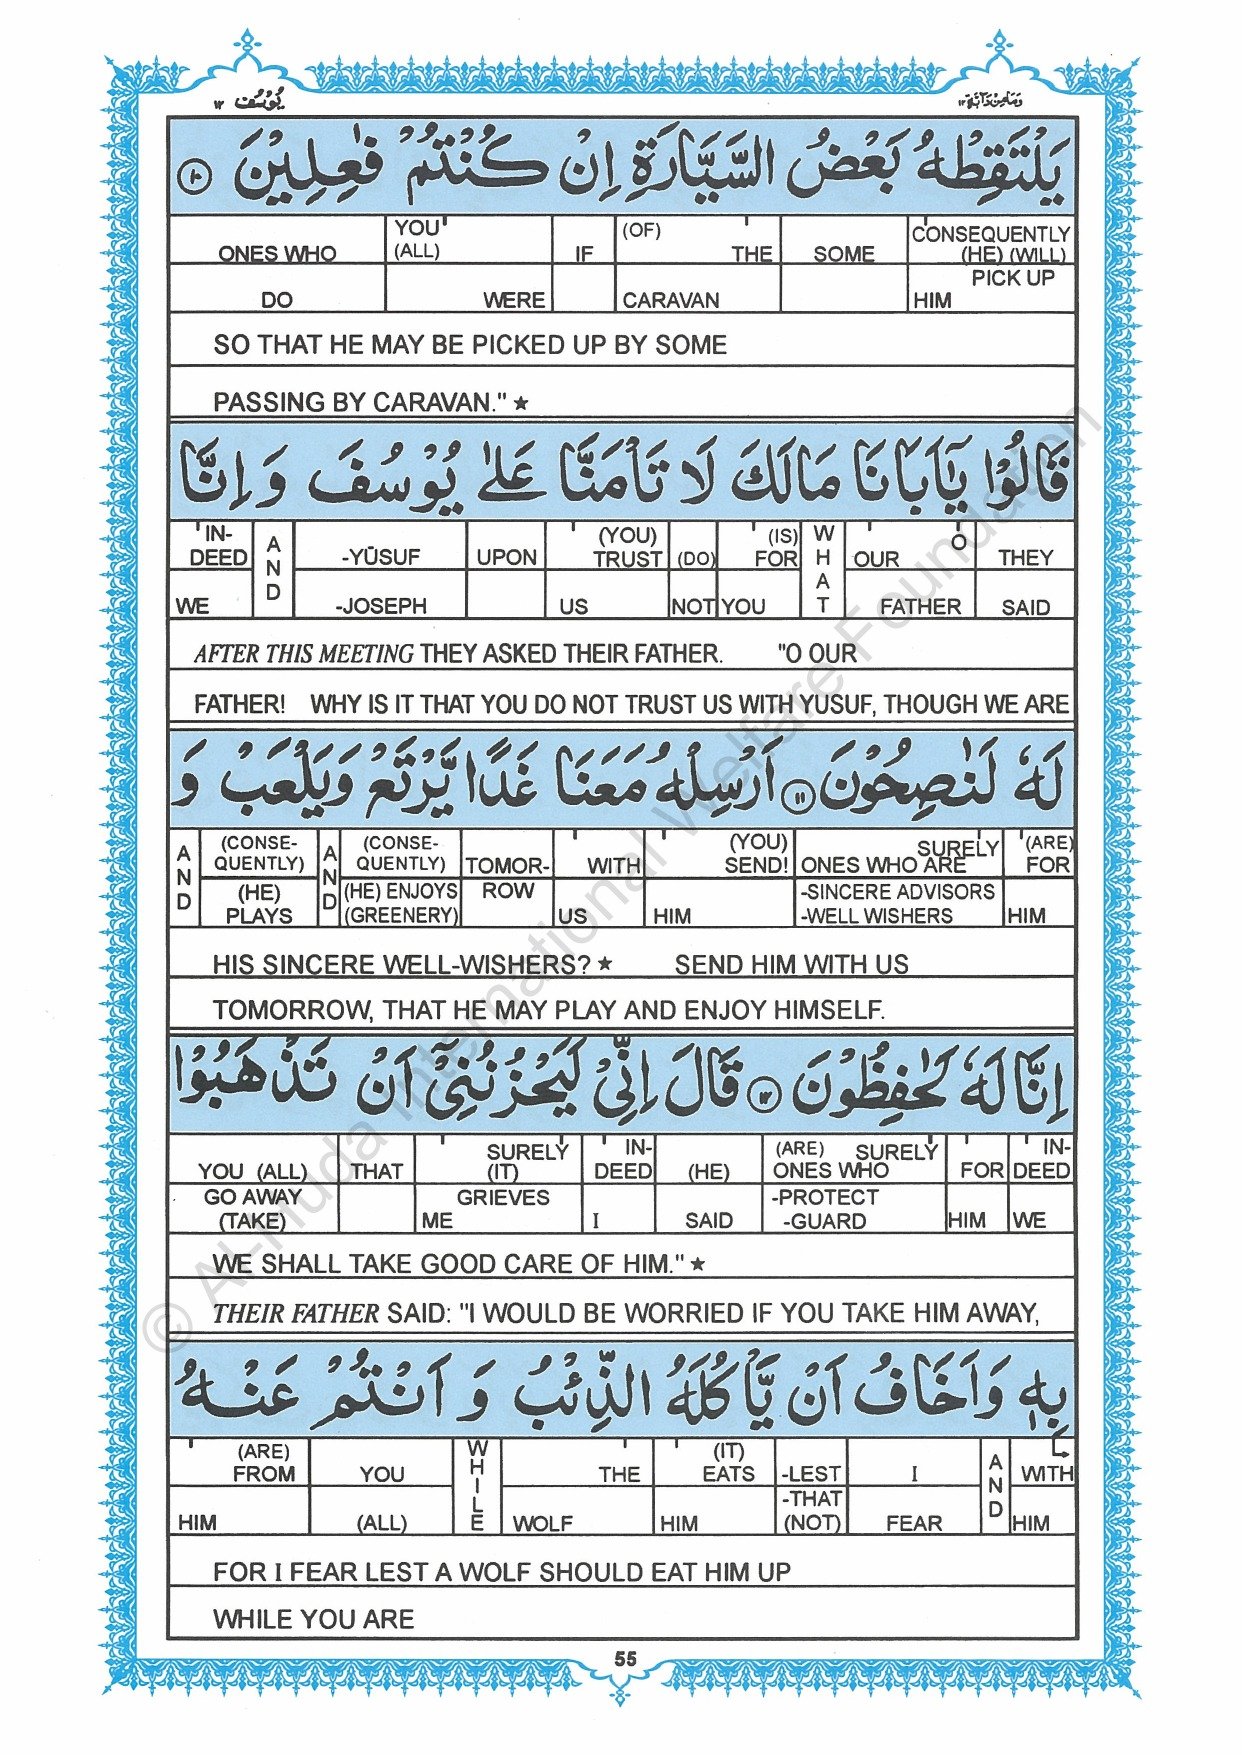 يُوسُف ١٢
وَمَا مِنْ دَآبَّة ١٢
يَلْتَقِطْهُ بَعْضُ السَّيَّارَةِ اِنْ كُنْتُمْ فٰعِلِيْنَ ١٠
ONES WHO YOU (ALL) IF (OF) THE SOME CONSEQUENTLY (HE) (WILL)
DO WERE CARAVAN PICK UP HIM
SO THAT HE MAY BE PICKED UP BY SOME
PASSING BY CARAVAN." ★
قَالُوْا يٰۤاَبَانَا مَالَكَ لَا تَاْمَنَّا عَلٰى يُوْسُفَ وَ اِنَّا
IN-DEED AND -YŪSUF UPON (YOU) TRUST (DO) (IS) FOR WHAT OUR O THEY
WE -JOSEPH US NOT YOU FATHER SAID
AFTER THIS MEETING THEY ASKED THEIR FATHER. "O OUR
FATHER! WHY IS IT THAT YOU DO NOT TRUST US WITH YUSUF, THOUGH WE ARE
لَهٗ لَنٰصِحُوْنَ ١١ اَرْسِلْهُ مَعَنَا غَدًا يَّرْتَعْ وَيَلْعَبْ وَ
AND (CONSE-QUENTLY) AND (CONSE-QUENTLY) TOMOR- WITH (YOU) SEND! SURELY ONES WHO ARE (ARE) FOR
(HE) PLAYS (HE) ENJOYS (GREENERY) ROW US HIM -SINCERE ADVISORS -WELL WISHERS HIM
HIS SINCERE WELL-WISHERS? ★ SEND HIM WITH US
TOMORROW, THAT HE MAY PLAY AND ENJOY HIMSELF.
اِنَّا لَهٗ لَحٰفِظُوْنَ ١٢ قَالَ اِنِّيْ لَيَحْزُنُنِيْۤ اَنْ تَذْهَبُوْا
YOU (ALL) THAT SURELY (IT) IN-DEED (HE) (ARE) SURELY ONES WHO FOR IN-DEED
GO AWAY (TAKE) GRIEVES ME I SAID -PROTECT -GUARD HIM WE
WE SHALL TAKE GOOD CARE OF HIM." ★
THEIR FATHER SAID: "I WOULD BE WORRIED IF YOU TAKE HIM AWAY,
بِهٖ وَاَخَافُ اَنْ يَّاْكُلَهُ الذِّئْبُ وَ اَنْتُمْ عَنْهُ
(ARE) FROM YOU WHILE THE (IT) EATS -LEST I AND WITH
HIM (ALL) WOLF HIM -THAT (NOT) FEAR HIM
FOR I FEAR LEST A WOLF SHOULD EAT HIM UP
WHILE YOU ARE
55
© Al-Huda International Welfare Foundation